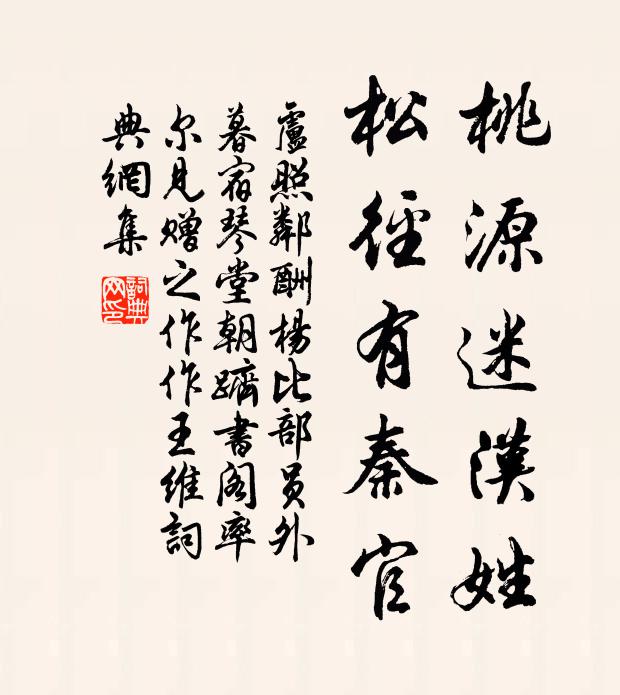 桃源迷漢姓
松徑有秦官
盧照鄰酬楊比部員外
暮宿琴堂朝躋書阁率
尔見贈之作作王維詞
典網集
詞典
网印